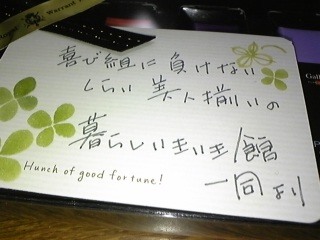 喜び組に負けない
くらい美人揃いの
暮らしいきいき館
Hunch of good fortune!
一同より